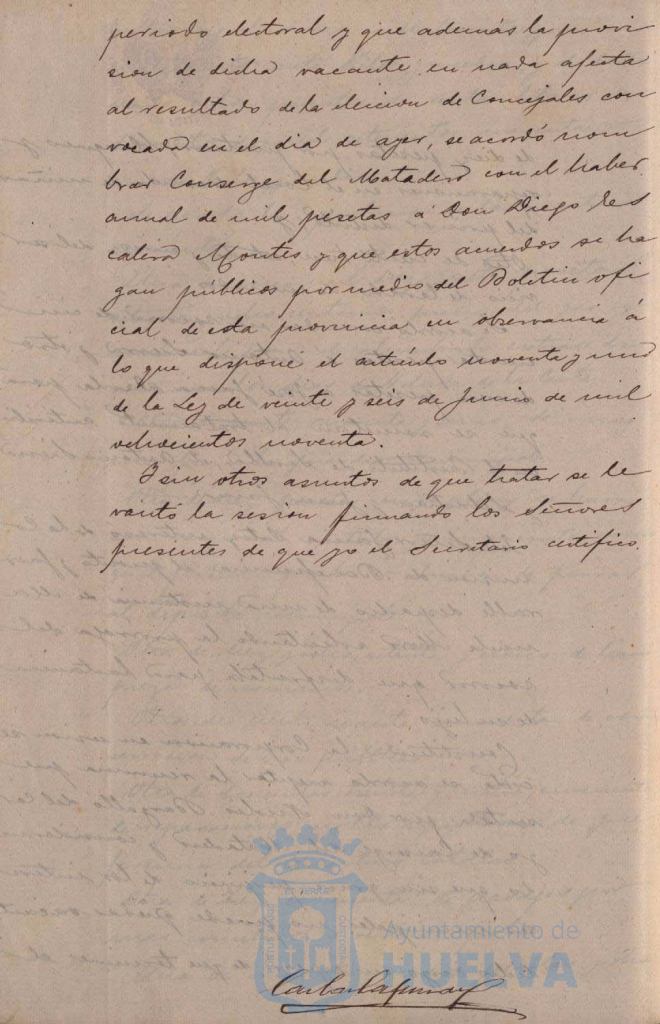 periodo electoral y que además la provi
sion de dicha vacante en nada afecta
al resultado de la eleccion de Concejales con
vocada en el dia de ayer, se acordó nom
brar Conserge del Matadero con el haber
anual de mil pesetas á Don Diego
Montes y que estos acuerdos se ha
gan públicos por medio del Boletin ofi
cial de esta provincia en observancia á
lo que dispone el artículo noventa y uno
de la Ley de veinte y seis de Junio de mil
ochocientos noventa.
I sin otros asuntos de que tratar se le
vantó la sesion firmando los Señores
presentes de que yo el Secretario certifico.
Ayuntamiento de
HUELVA